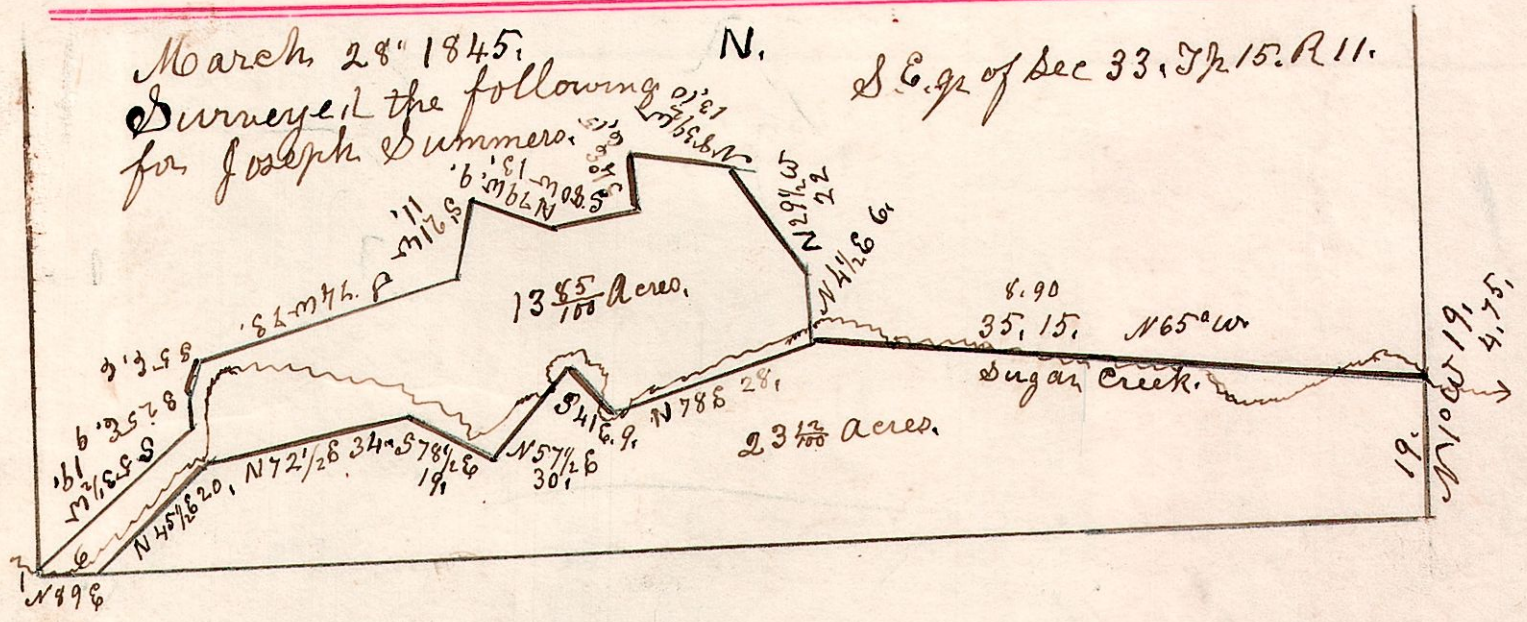 March 28" 1845.
Surveyed the following
for Joseph Summers.
N.
S. E. qr of Sec 33. Tp 15. R 11.
N 83 1/2 W
13.10
S 80 W
13.
N 79 W. 9.
S 21 W
11.
S 74 W 73.
S 5 E. 6
S 25 E. 9
S 53 1/2 W
19.
N 29 1/2 W
22
N 4 1/2 E 6.
13 85/100 Acres.
8.90
35. 15. N 65° W.
Sugar Creek.
N 10 W 19.
4.75.
19.
N 78 E 28.
S 41 E. 9.
N 57 1/2 E
30.
S 78 1/2 E
19.
N 72 1/2 E 34
N 45 1/2 E 20.
23 12/100 Acres.
9
N 89 E